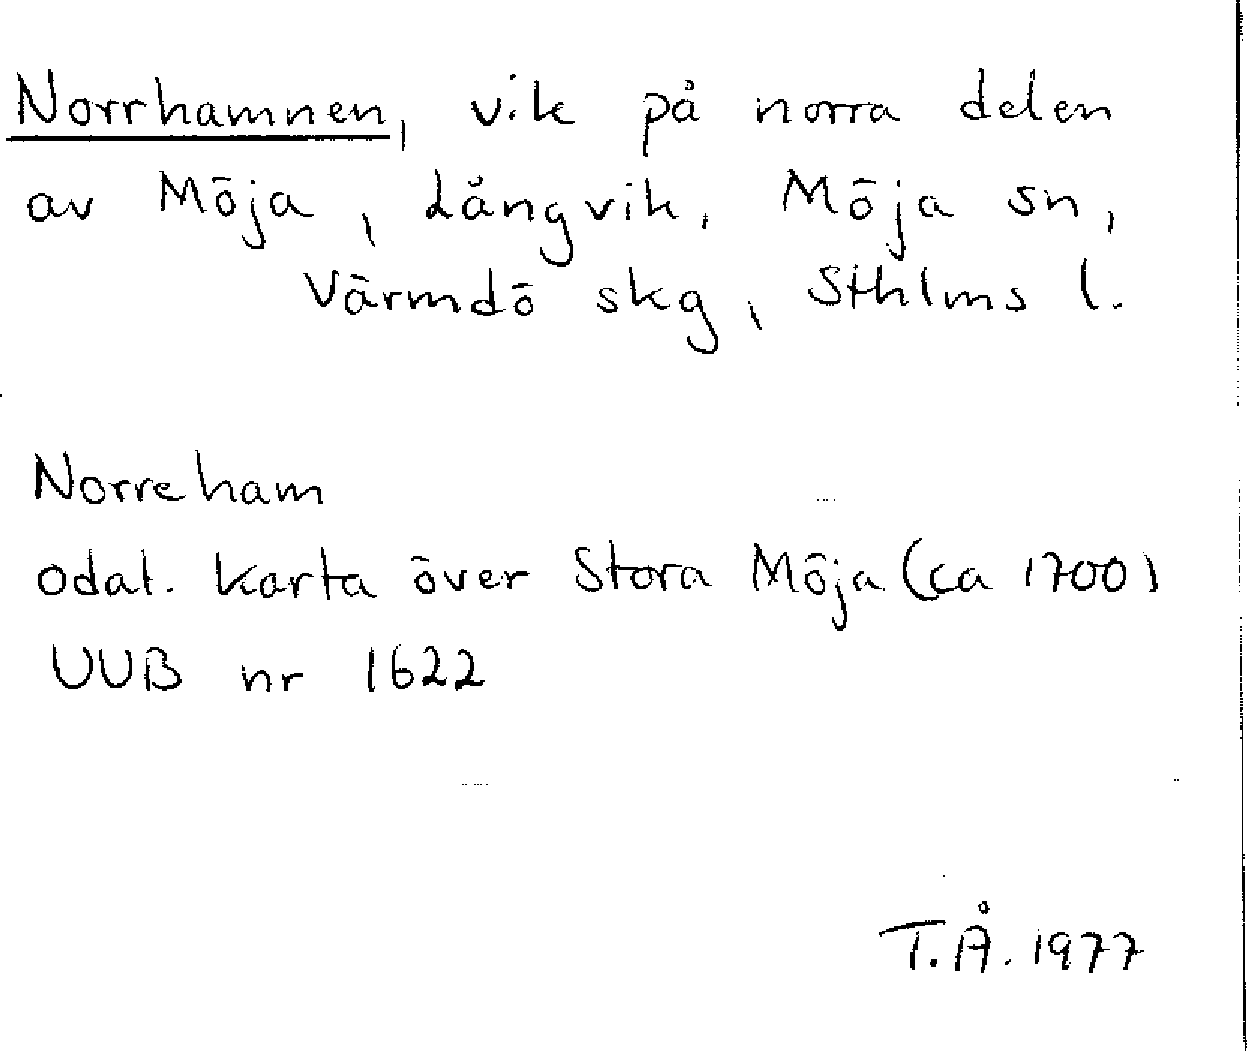 Norrhamnen, vik på norra delen
av Möja, Långvik. Möja sn,
Värmdö skg, Sthlms l.
Norreham
odat. karta över Stora Möja (ca 1700)
UUB nr 1622
T.Å. 1977